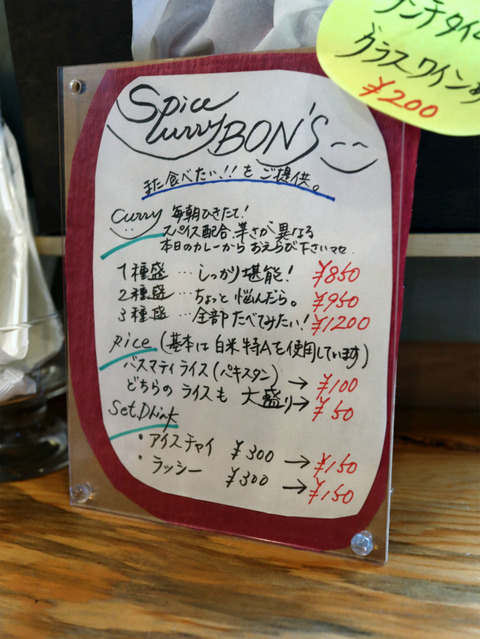 ランチタイム
グラスワイン
¥200
Spice
curry BON'S
また食べたい!!をご提供。
Curry 毎朝ひきたて!
スパイス配合、辛さが異なる
本日のカレーからおえらび下さいませ
1種盛…しっかり堪能! ¥850
2種盛…ちょっと悩んだら。 ¥950
3種盛…全部たべてみたい! ¥1200
Rice (基本は白米特Aを使用しています)
バスマティライス(パキスタン) → ¥100
どちらのライスも大盛り→ ¥50
Set.Drink
・アイスチャイ ¥300 → ¥150
・ラッシー ¥300 → ¥150